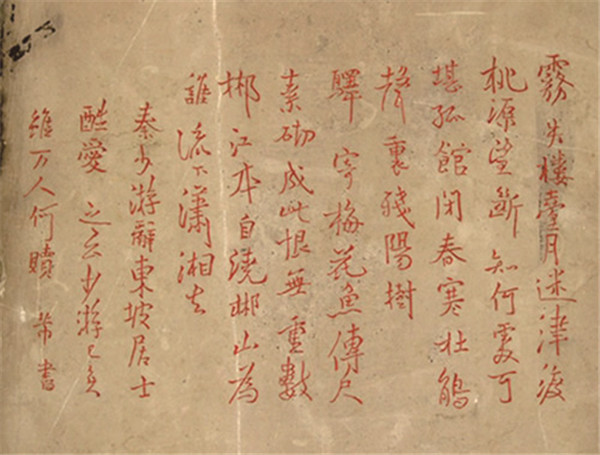 霧失樓臺月迷津渡
桃源望斷知何處可
堪孤館閉春寒杜鵑
聲裏殘陽樹
驛寄梅花魚傳尺
素砌成此恨無重數
郴江本自繞郴山為
誰流下瀟湘去
秦少游辭東坡居士
酷愛之云少游已矣
雖万人何贖芾書